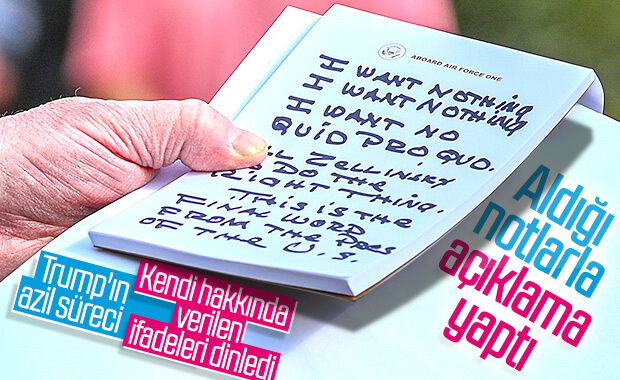 ABOARD AIR FORCE ONE
I WANT NOTHING
I WANT NOTHING
I WANT NO
QUID PRO QUO.
ZELLINSKY
DO THE
RIGHT THING.
THIS IS THE
FINAL WORD
FROM THE PRES
OF THE U.S.
Aldığı
notlarla
açıklama
yaptı
Trump'ın
azil süreci
Kendi hakkında
verilen
ifadeleri dinledi